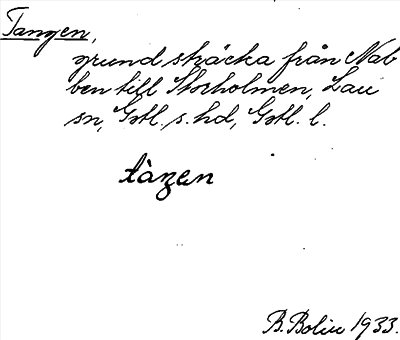 Tangen,
grund sträcka från Nab
ben till Storholmen, Lau
sn, Gotl. s. hd, Gotl. l.
tàŋen
B. Bolin 1933.